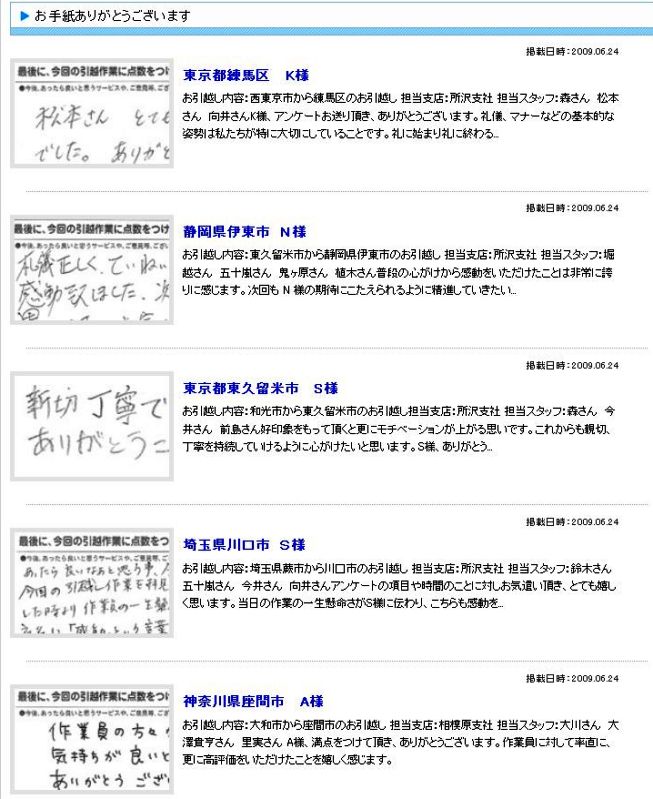 お手紙ありがとうございます
掲載日時：2009.06.24
最後に、今回の引越作業に点数をつけ
松本さん とても
でした。 ありがと
東京都練馬区 K様
お引越し内容：西東京市から練馬区のお引越し 担当支店：所沢支社 担当スタッフ：森さん 松本
さん 向井さんK様、アンケートお送り頂き、ありがとうございます。礼儀、マナーなどの基本的な
姿勢は私たちが特に大切にしていることです。礼に始まり礼に終わる...
掲載日時：2009.06.24
最後に、今回の引越作業に点数をつけ
●今後、あったら良いと思うサービスや、ご意見等、ござ
礼儀正しく、ていねい
感動致しました。次
静岡県伊東市 N様
お引越し内容：東久留米市から静岡県伊東市のお引越し 担当支店：所沢支社 担当スタッフ：堀
越さん 五十嵐さん 鬼ヶ原さん 植木さん普段の心がけから感動をいただけたことは非常に誇
りに感じます。次回も N 様の期待にこたえられるように精進していきたい...
掲載日時：2009.06.24
新切 丁寧で
ありがとうご
東京都東久留米市 S様
お引越し内容：和光市から東久留米市のお引越し担当支店：所沢支社 担当スタッフ：森さん 今
井さん 前島さん好印象をもって頂くと更にモチベーションが上がる思いです。これからも親切、
丁寧を持続していけるように心がけたいと思います。S様、ありがとう...
掲載日時：2009.06.24
最後に、今回の引越作業に点数をつ
●今後、あったら良いと思うサービスや、ご意見等、ござ
あったら良いなあと思う事、
今回の引越し作業を拝見
した時より作業員の一生懸
埼玉県川口市 S様
お引越し内容：埼玉県蕨市から川口市のお引越し 担当支店：所沢支社 担当スタッフ：鈴木さん
五十嵐さん 今井さん 向井さんアンケートの項目や時間のことに対しお気遣い頂き、とても嬉し
く思います。当日の作業の一生懸命さがS様に伝わり、こちらも感動を...
掲載日時：2009.06.24
最後に、今回の引越作業に点数をつ
●今後、あったら良いと思うサービスや、ご意見等、ござ
作業員の方々
気持ちが良いと
ありがとう ござい
神奈川県座間市 A様
お引越し内容：大和市から座間市のお引越し 担当支店：相模原支社 担当スタッフ：大川さん 大
澤貴亨さん 里実さん A様、満点をつけて頂き、ありがとうございます。作業員に対して率直に、
更に高評価をいただけたことを嬉しく感じます。